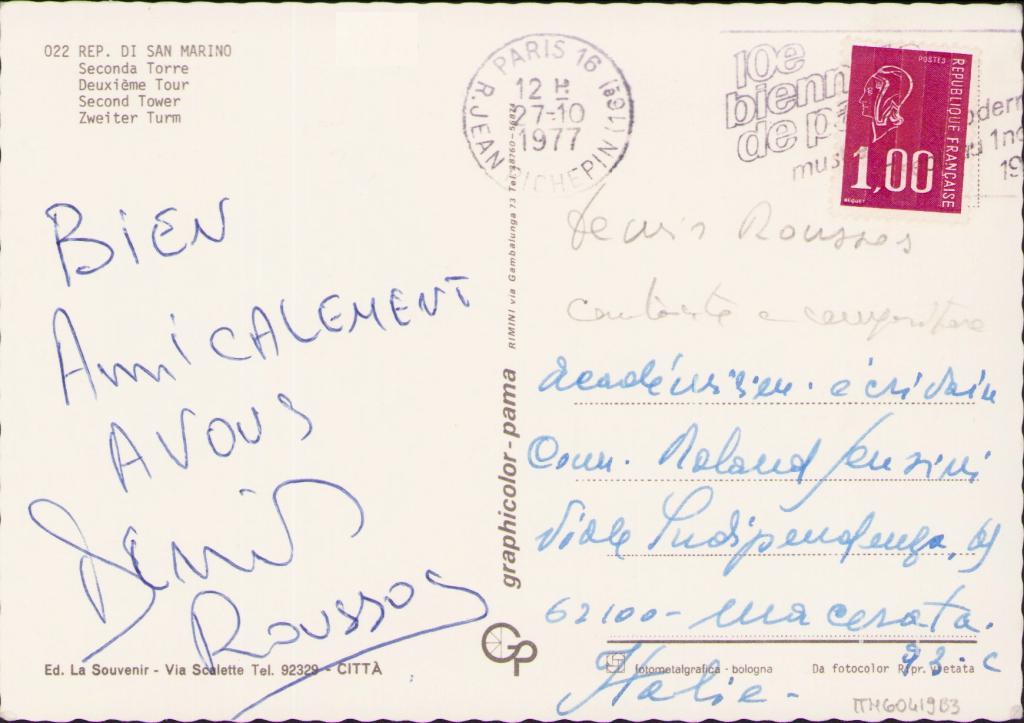 022 REP. DI SAN MARINO
Seconda Torre
Deuxième Tour
Second Tower
Zweiter Turm
BIEN
AMICALEMENT
A VOUS
Demis
Roussos
Ed. La Souvenir - Via Scalette Tel. 92329 - CITTÀ
graphicolor-pama RIMINI via Gambalunga 73 Tel.
GP
PARIS 16 (16è)
12 H
27-10
1977
R. JEAN RICHEPIN
10e
bienn
de p
mus
19
POSTES
REPUBLIQUE FRANÇAISE
1,00
BEQUET
Demis Roussos
cantante e compositore
académisien. écrivain
Comm. Roland Sensini
Viale Indipendenza,
62100 - Macerata.
Italie -
93. c
fotometalgrafica - bologna
Da fotocolor Ripr. Vietata